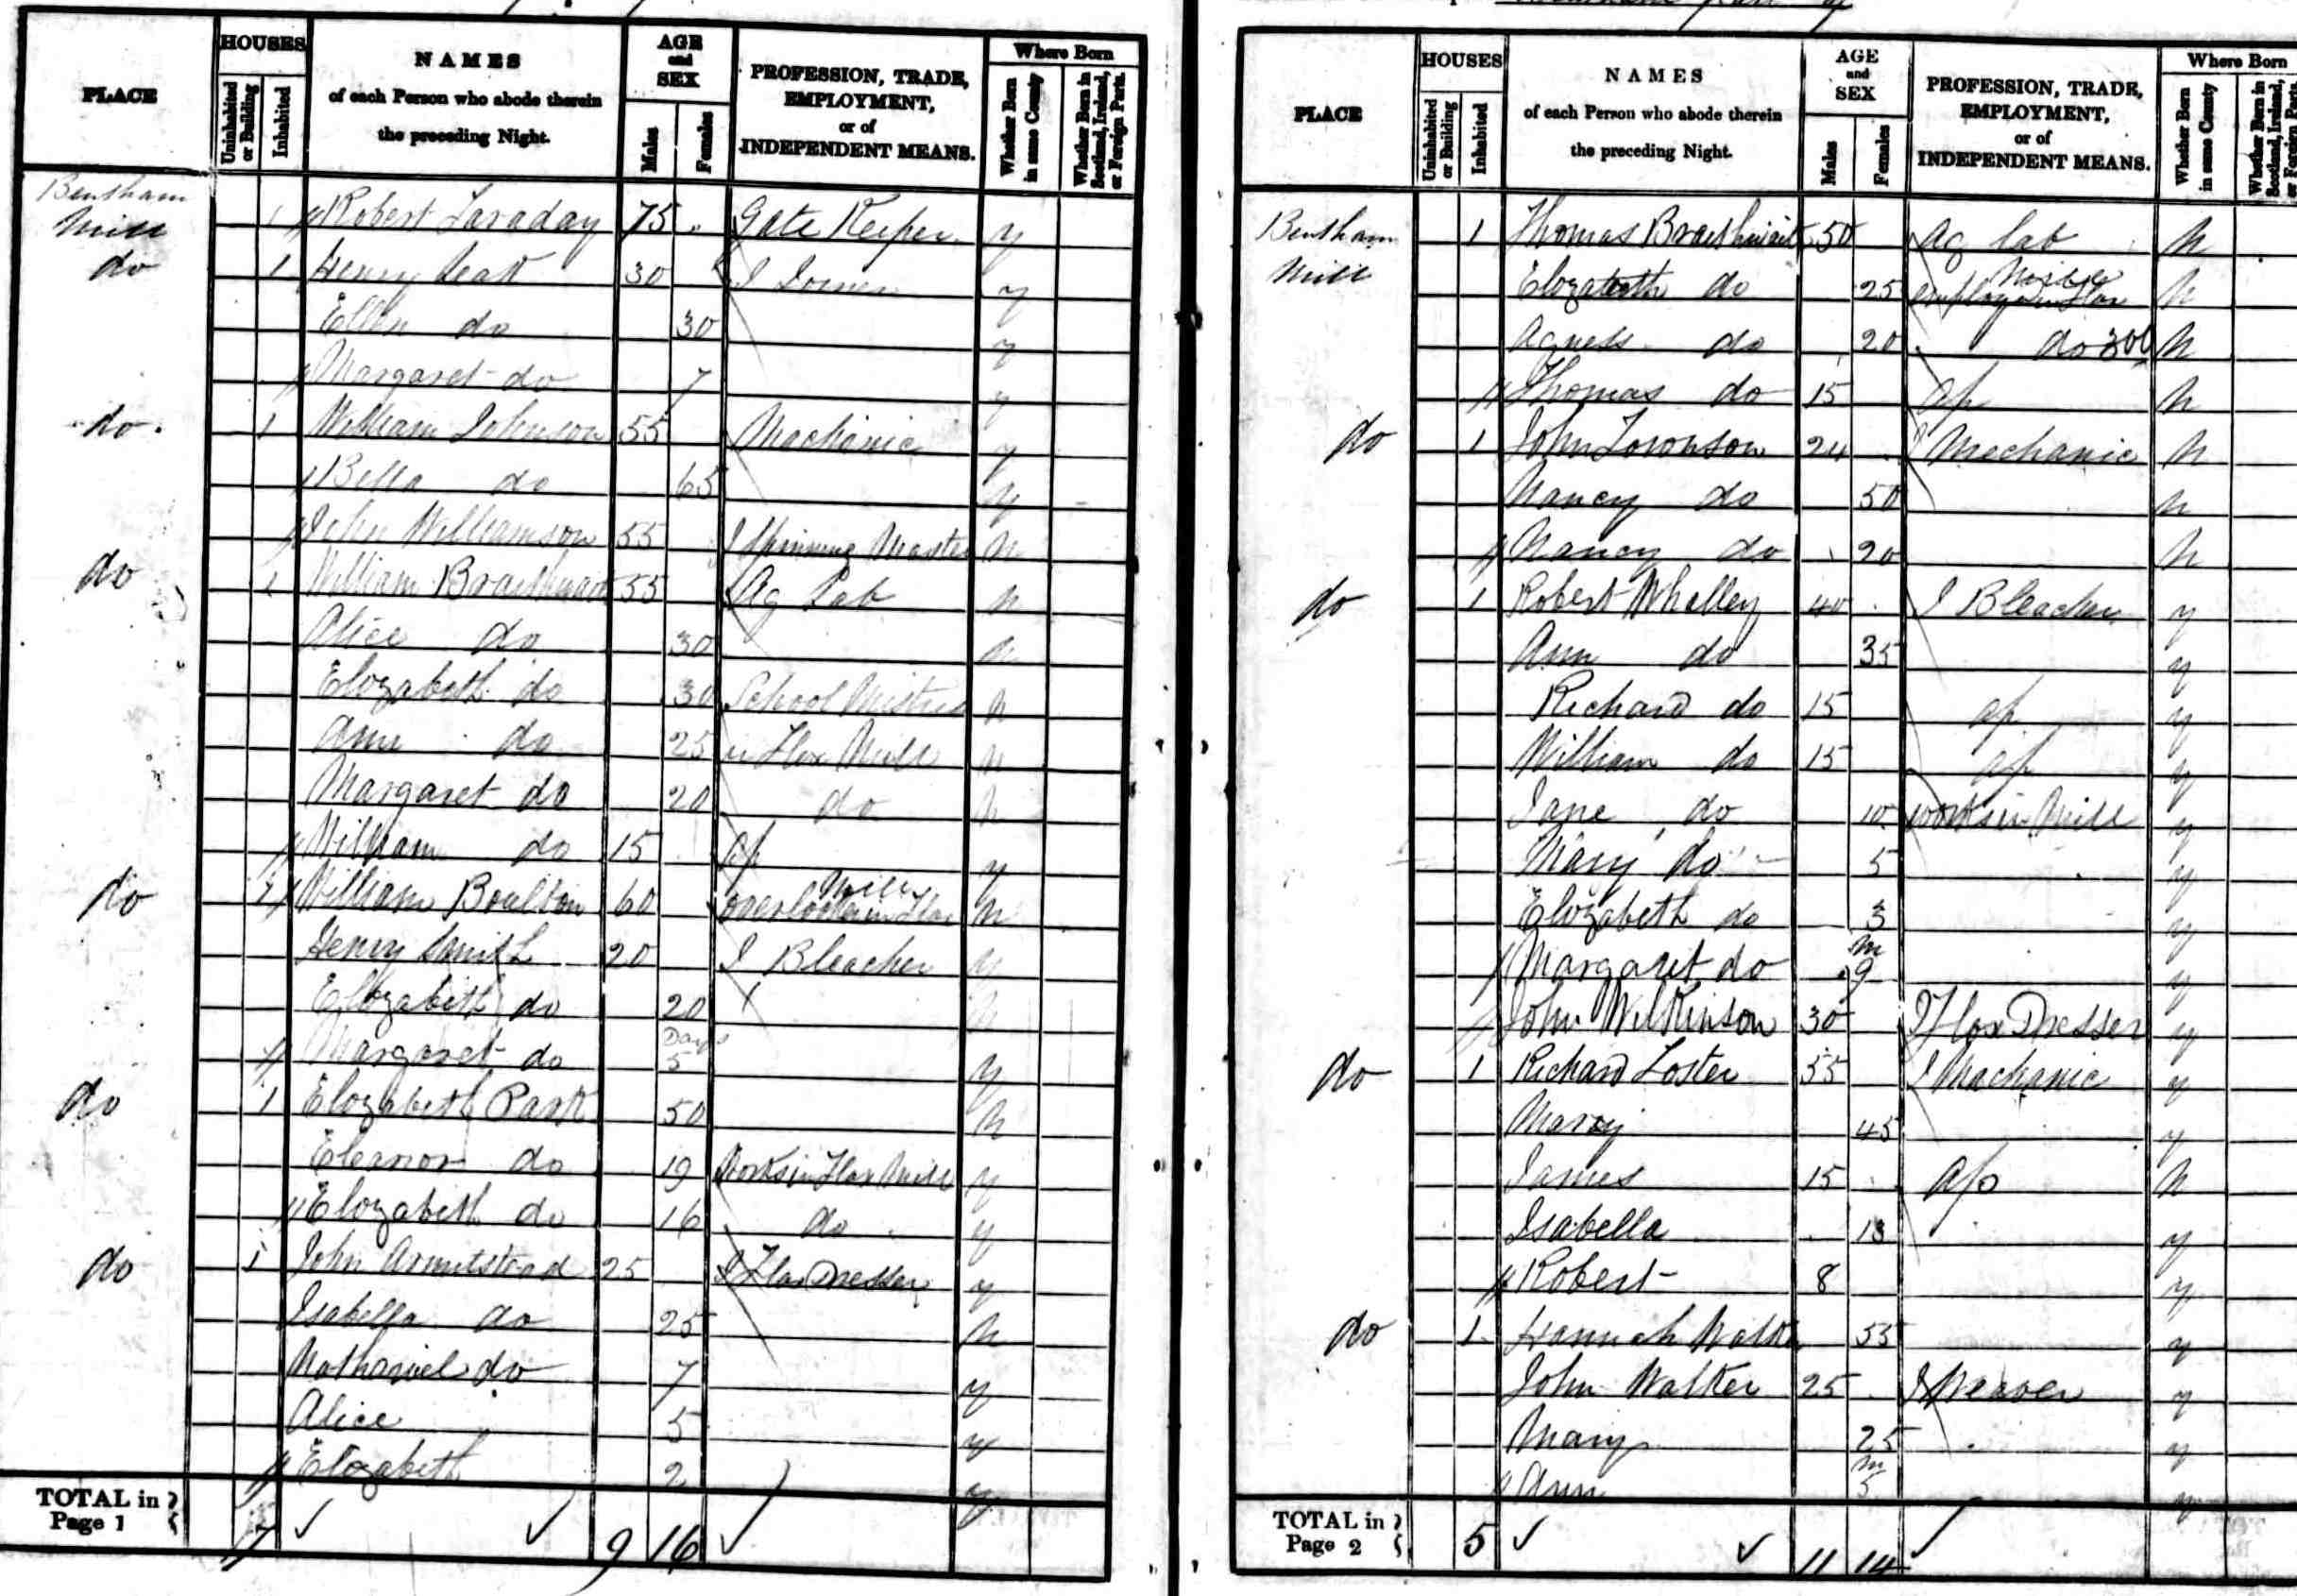 PLACE HOUSES Uninhabited or Building Inhabited NAMES of each Person who abode therein the preceding Night. AGE and SEX Males Females PROFESSION, TRADE, EMPLOYMENT, or of INDEPENDENT MEANS. Where Born Whether Born in same County Whether Born in Scotland, Ireland, or Foreign Parts.
Bensham
Mill 1 Robert Faraday 75 Gate Keeper y
do 1 Henry 30 J Joiner y
Ellen do 30 y
Margaret do 7 y
do 1 William Johnson 55 Machanic y
Bella do 65 y
John Williamson 55 J Spinning Master N
do 1 William Braithwait 55 Ag Lab N
Alice do 30 N
Elozabeth do 30 School Mistres N
Ann do 25 in Flax Mill N
Margaret do 20 do N
William do 15 ap y
do William Boulton 60 Overlooker in Flax Mill N
Henry Smith 20 J Bleacher y
Elozabeth do 20 N
Margaret do Days 5 y
do 1 Elozabeth Park 50 N
Eleanor do 19 Works in Flax Mill y
Elozabeth do 16 do y
do 1 John Armitstead 25 J Flax Dresser y
Isabella do 25 N
Nathaniel do 7 y
Alice 5 y
Elozabeth 2 y
TOTAL in Page 1 7 9 16
PLACE HOUSES Uninhabited or Building Inhabited NAMES of each Person who abode therein the preceding Night. AGE and SEX Males Females PROFESSION, TRADE, EMPLOYMENT, or of INDEPENDENT MEANS. Where Born Whether Born in same County Whether Born in Scotland, Ireland, or Foreign Parts.
Bensham 1 Thomas Braithwait 50 Ag lab N
Mill Elozabeth do 25 in Flax Mill N
Agness do 20 do N
Thomas do 15 ap N
do 1 John 24 J Mechanic N
Nancy do 50 N
Nancy do 20 N
do 1 Robert Whalley 40 J Bleacher y
Ann do 35 y
Richard do 15 ap y
William do 15 ap y
Jane do 10 works in Mill y
Mary do 5 y
Elozabeth do 3 y
Margaret do m 9 y
John Wilkinson 30 J Flax Dresser y
do 1 Richard Foster 55 J Machanic y
Mary 45 y
James 15 ap N
Isabella 13 y
Robert 8 y
do 1 Hannah Walker 55 y
John Walker 25 J Weaver y
Mary 25 y
Ann m 5 y
TOTAL in Page 2 5 11 14